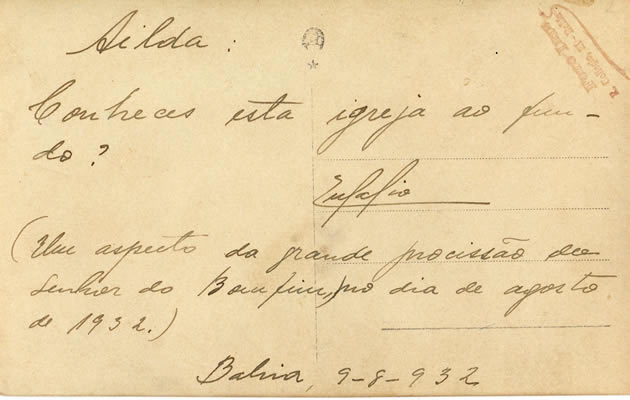 Ailda:
Conheces esta igreja ao fun-
do?
Eulalio
(Um aspecto da grande procissão do
Senhor do Bomfim, no dia de agosto
de 1932.)
Bahia, 9-8-932